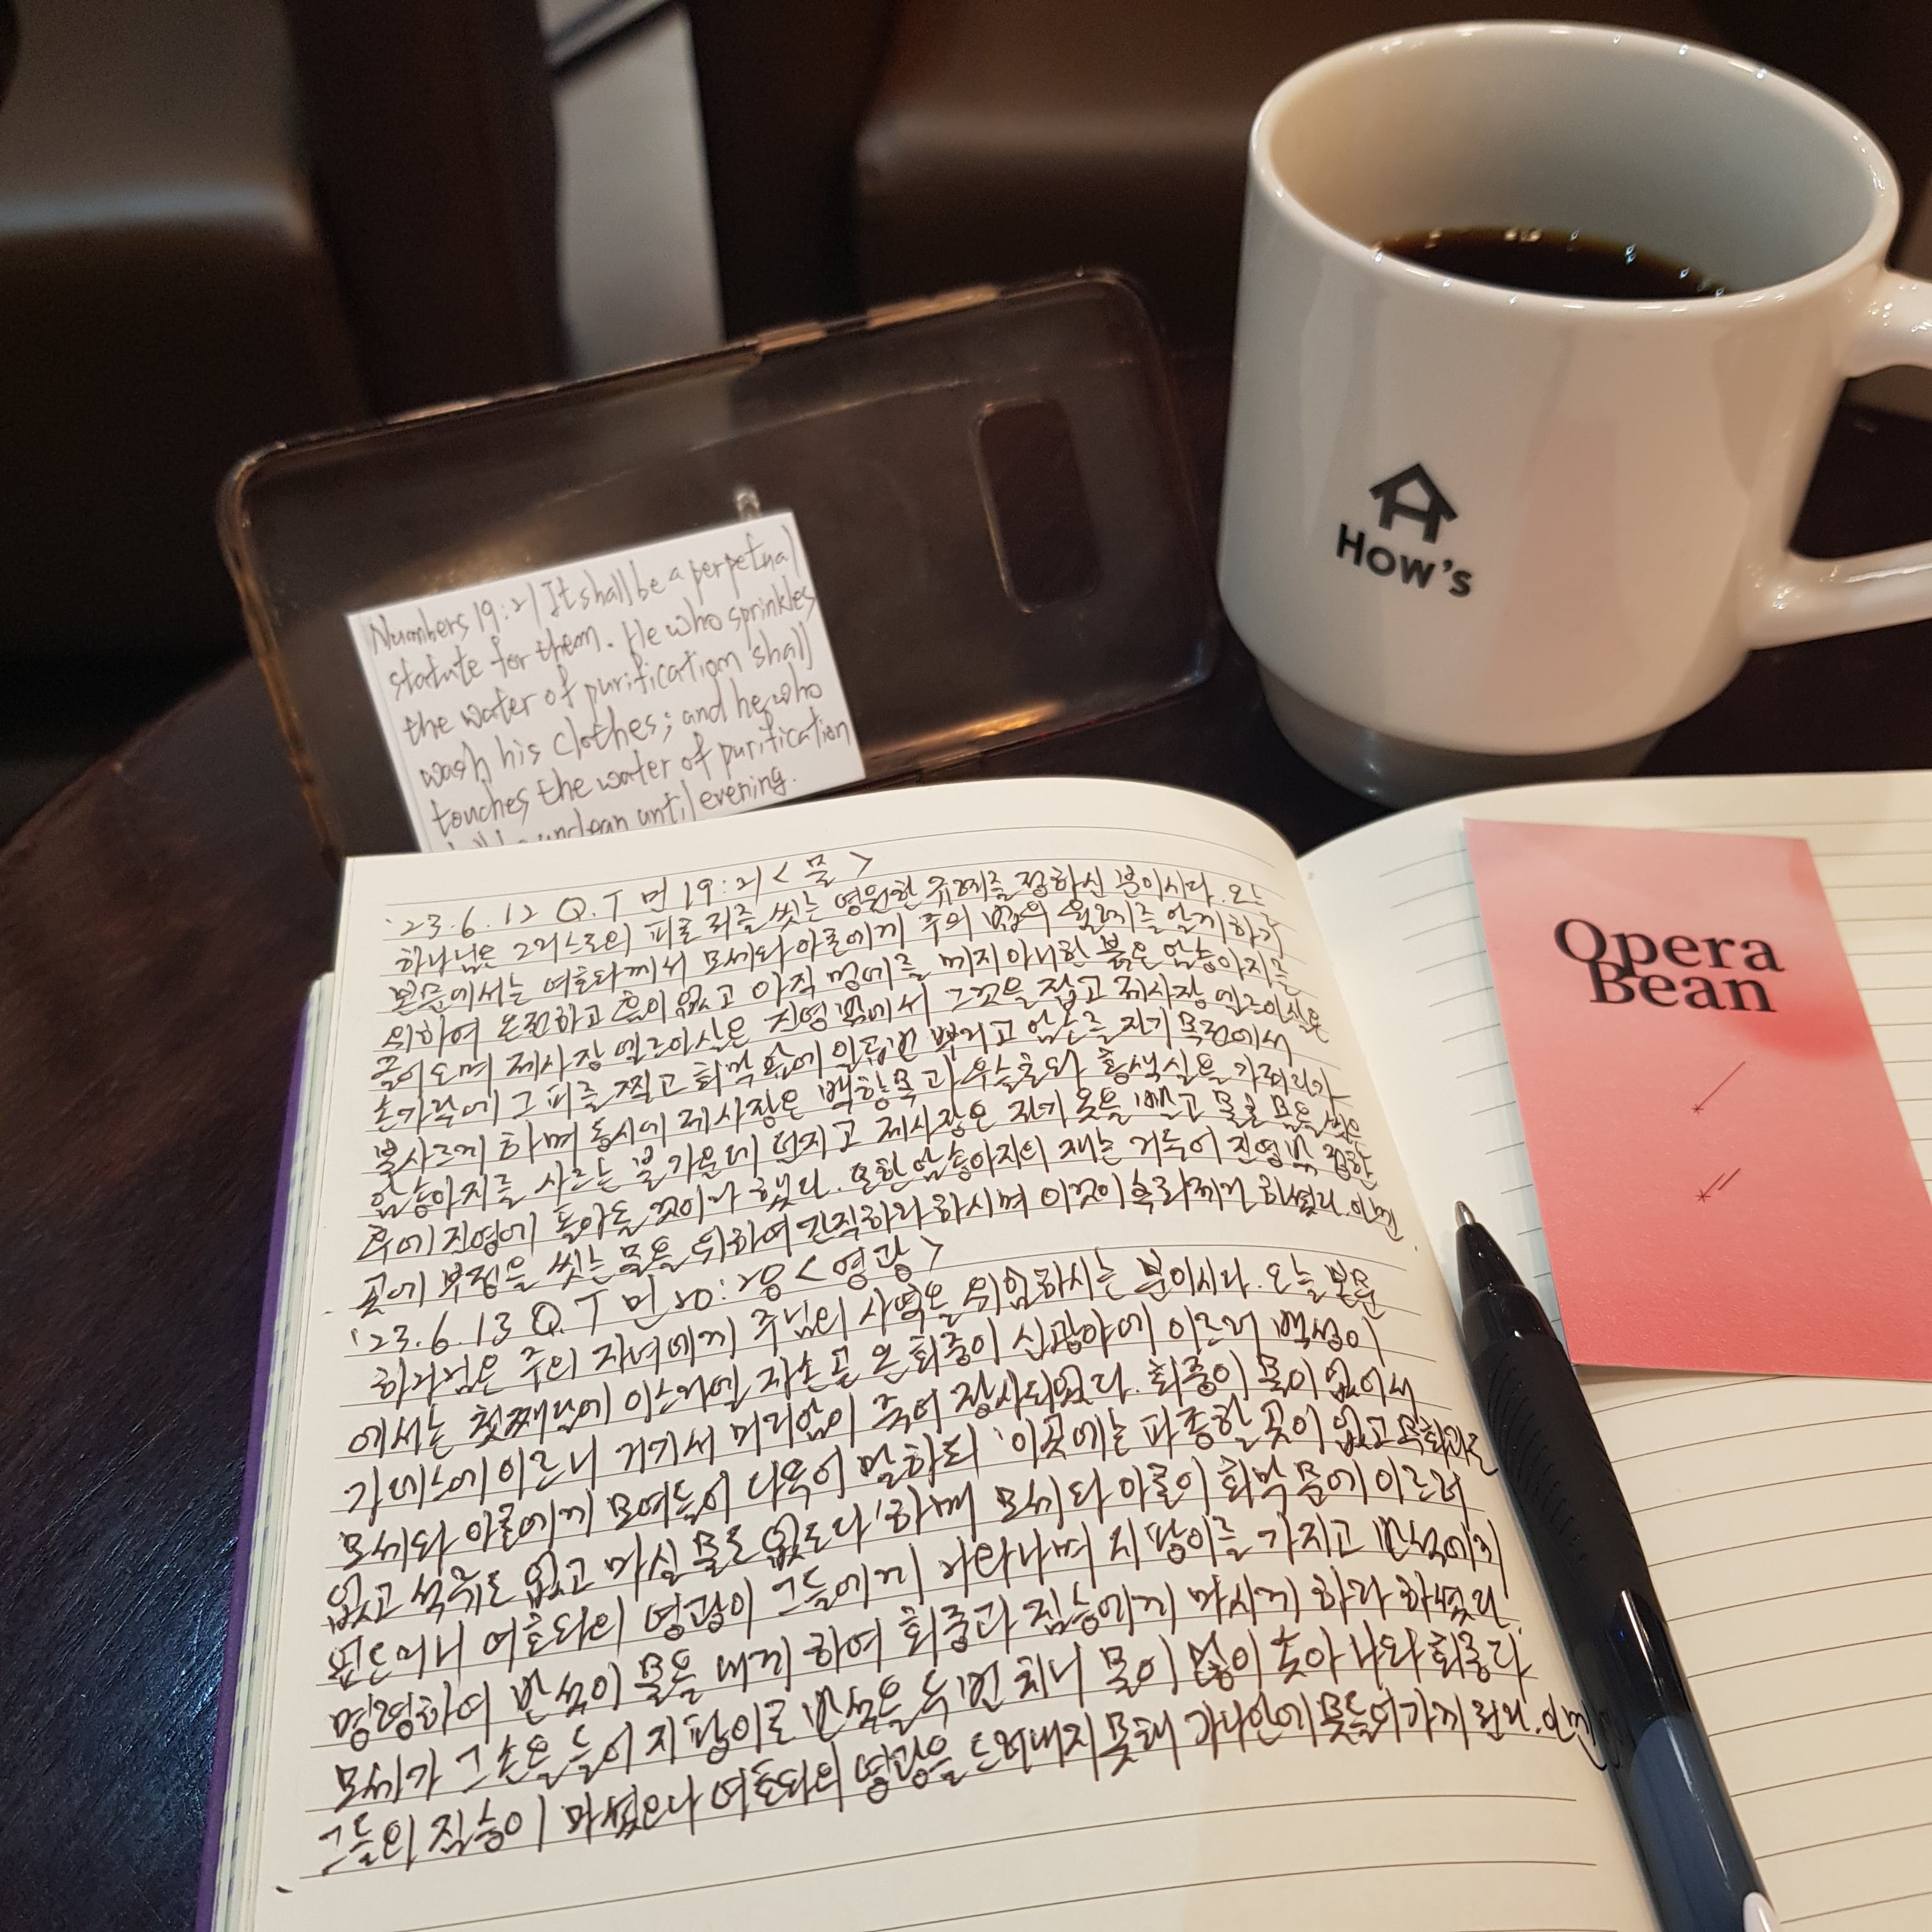 How's
Numbers 19:21 It shall be a perpetual
statute for them. He who sprinkles
the water of purification shall
wash his clothes; and he who
touches the water of purification
unclean until evening.
Opera
Bean
'23.6.12 Q.T 민 19:21 <물>
하나님은 그리스도의 피로 죄를 씻는 영원한 규례를 정하신 분이시다. 오늘
본문에서는 여호와께서 모세와 아론에게 주의 법의 율례를 알게 하기
위하여 온전하고 흠이 없고 아직 멍에를 메지 아니한 붉은 암송아지를
끌어오며 제사장 엘르아살은 진영 밖에서 그것을 잡고 제사장 엘르아살은
손가락에 그 피를 찍고 회막 앞에 일곱번 뿌리고 암소를 자기 목전에서
불사르게 하며 동시에 제사장은 백향목과 우슬초와 홍색실을 가져다가
암송아지를 사르는 불 가운데 던지고 제사장은 자기 옷을 빨고 물로 몸을 씻은
후에 진영에 돌아올 것이라 했다. 또한 암송아지의 재는 거두어 진영 밖 정한
곳에 부정을 씻는 물을 위하여 간직하라 하시며 이것이 속죄제라 하셨다. 아멘.
'23.6.13 Q.T 민 20: <영광>
하나님은 주의 자녀에게 주님의 사역을 위임하시는 분이시다. 오늘 본문
에서는 첫째달에 이스라엘 자손 곧 온 회중이 신 광야에 이르러 백성이
가데스에 이르니 거기서 미리암이 죽어 장사되었다. 회중이 물이 없어서
모세와 아론에게 모여들어 다투어 말하되 '이곳에는 파종할 곳이 없고 무화과도
없고 석류도 없고 마실 물도 없도다' 하매 모세와 아론이 회막 문에 이르러
엎드리니 여호와의 영광이 그들에게 나타나며 지팡이를 가지고 반석에게
명령하여 반석이 물을 내게 하여 회중과 짐승에게 마시게 하라 하셨다.
모세가 그 손을 들어 지팡이로 반석을 두번 치니 물이 많이 솟아 나와 회중과
그들의 짐승이 마셨으나 여호와의 영광을 드러내지 못해 가나안에 못들어가게 된다. 아멘